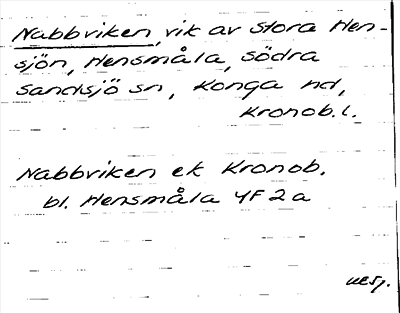 Nabbviken, vik av Stora Hen-
sjön, Hensmåla, södra
Sandsjö sn, Konga hd,
Kronob. l.
Nabbviken ek Kronob.
bl. Hensmåla 4F 2a